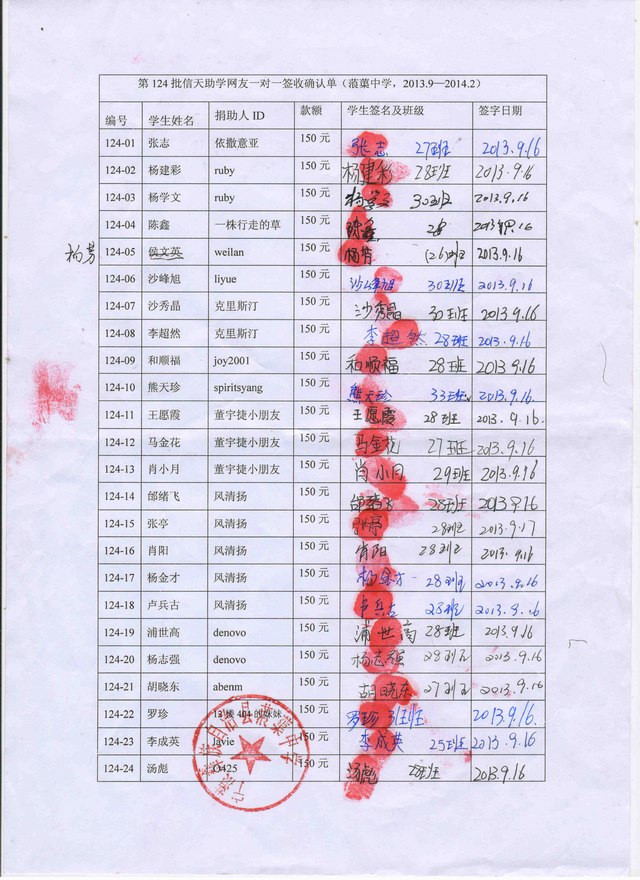 第 124 批信天助学网友一对一签收确认单（蒗蕖中学，2013.9—2014.2）
编号 学生姓名 捐助人 ID 款额 学生签名及班级 签字日期
124-01 张志 依撒意亚 150 元 张志 27班 2013.9.16
124-02 杨建彩 ruby 150 元 杨建彩 28班 2013.9.16
124-03 杨学文 ruby 150 元 30班 2013.9.16
124-04 陈鑫 一株行走的草 150 元 陈鑫 28 2013.9.16
杨芳 124-05 侯文英 weilan 150 元 杨芳 (26)班 2013.9.16
124-06 沙峰旭 liyue 150 元 沙峰旭 30班 2013.9.16
124-07 沙秀晶 克里斯汀 150 元 沙秀晶 30班 2013.9.16
124-08 李超然 克里斯汀 150 元 李超然 28班 2013.9.16
124-09 和顺福 joy2001 150 元 和顺福 28班 2013.9.16
124-10 熊天珍 spiritsyang 150 元 熊天珍 33班 2013.9.16
124-11 王愿霞 董宇捷小朋友 150 元 王愿霞 28班 2013.9.16.
124-12 马金花 董宇捷小朋友 150 元 马金花 27班 2013.9.16
124-13 肖小月 董宇捷小朋友 150 元 肖小月 29班 2013.9.16
124-14 邰绪飞 风清扬 150 元 28班 2013.9.16
124-15 张亭 风清扬 150 元 张亭 28班 2013.9.17
124-16 肖阳 风清扬 150 元 肖阳 28班 2013.9.16
124-17 杨金才 风清扬 150 元 杨金才 28班 2013.9.16
124-18 卢兵古 风清扬 150 元 卢兵古 28班 2013.9.16
124-19 浦世高 denovo 150 元 浦世高 28班 2013.9.16
124-20 杨志强 denovo 150 元 杨志强 29班 2013.9.16
124-21 胡晓东 abenm 150 元 胡晓东 27班 2013.9.16
124-22 罗珍 13 楼 404 的妹妹 150 元 罗珍 31班 2013.9.16.
124-23 李成英 lavie 150 元 李成英 25班 2013.9.16
124-24 汤彪 O425 150 元 汤彪 28班 2013.9.16